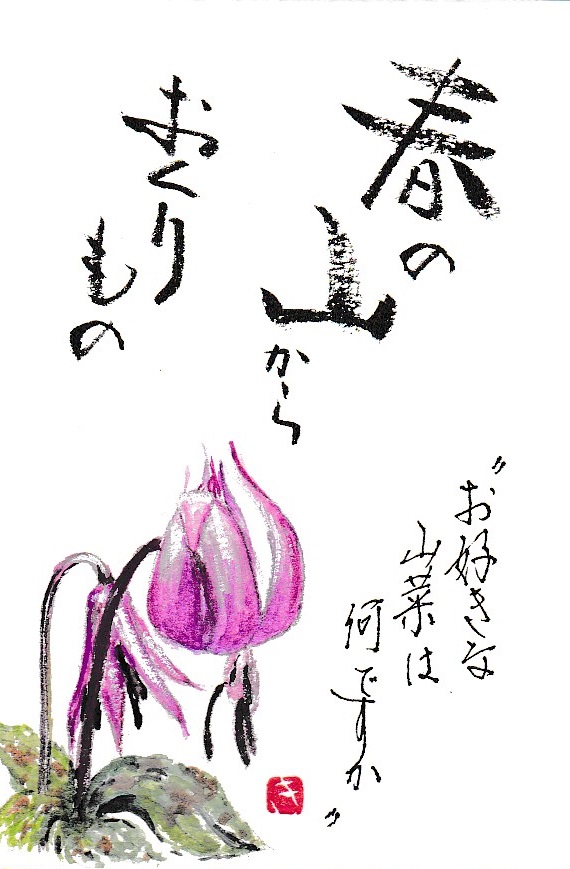 春の
山
から
おくり
もの
〃お好きな
山菜は
何ですか〃
き